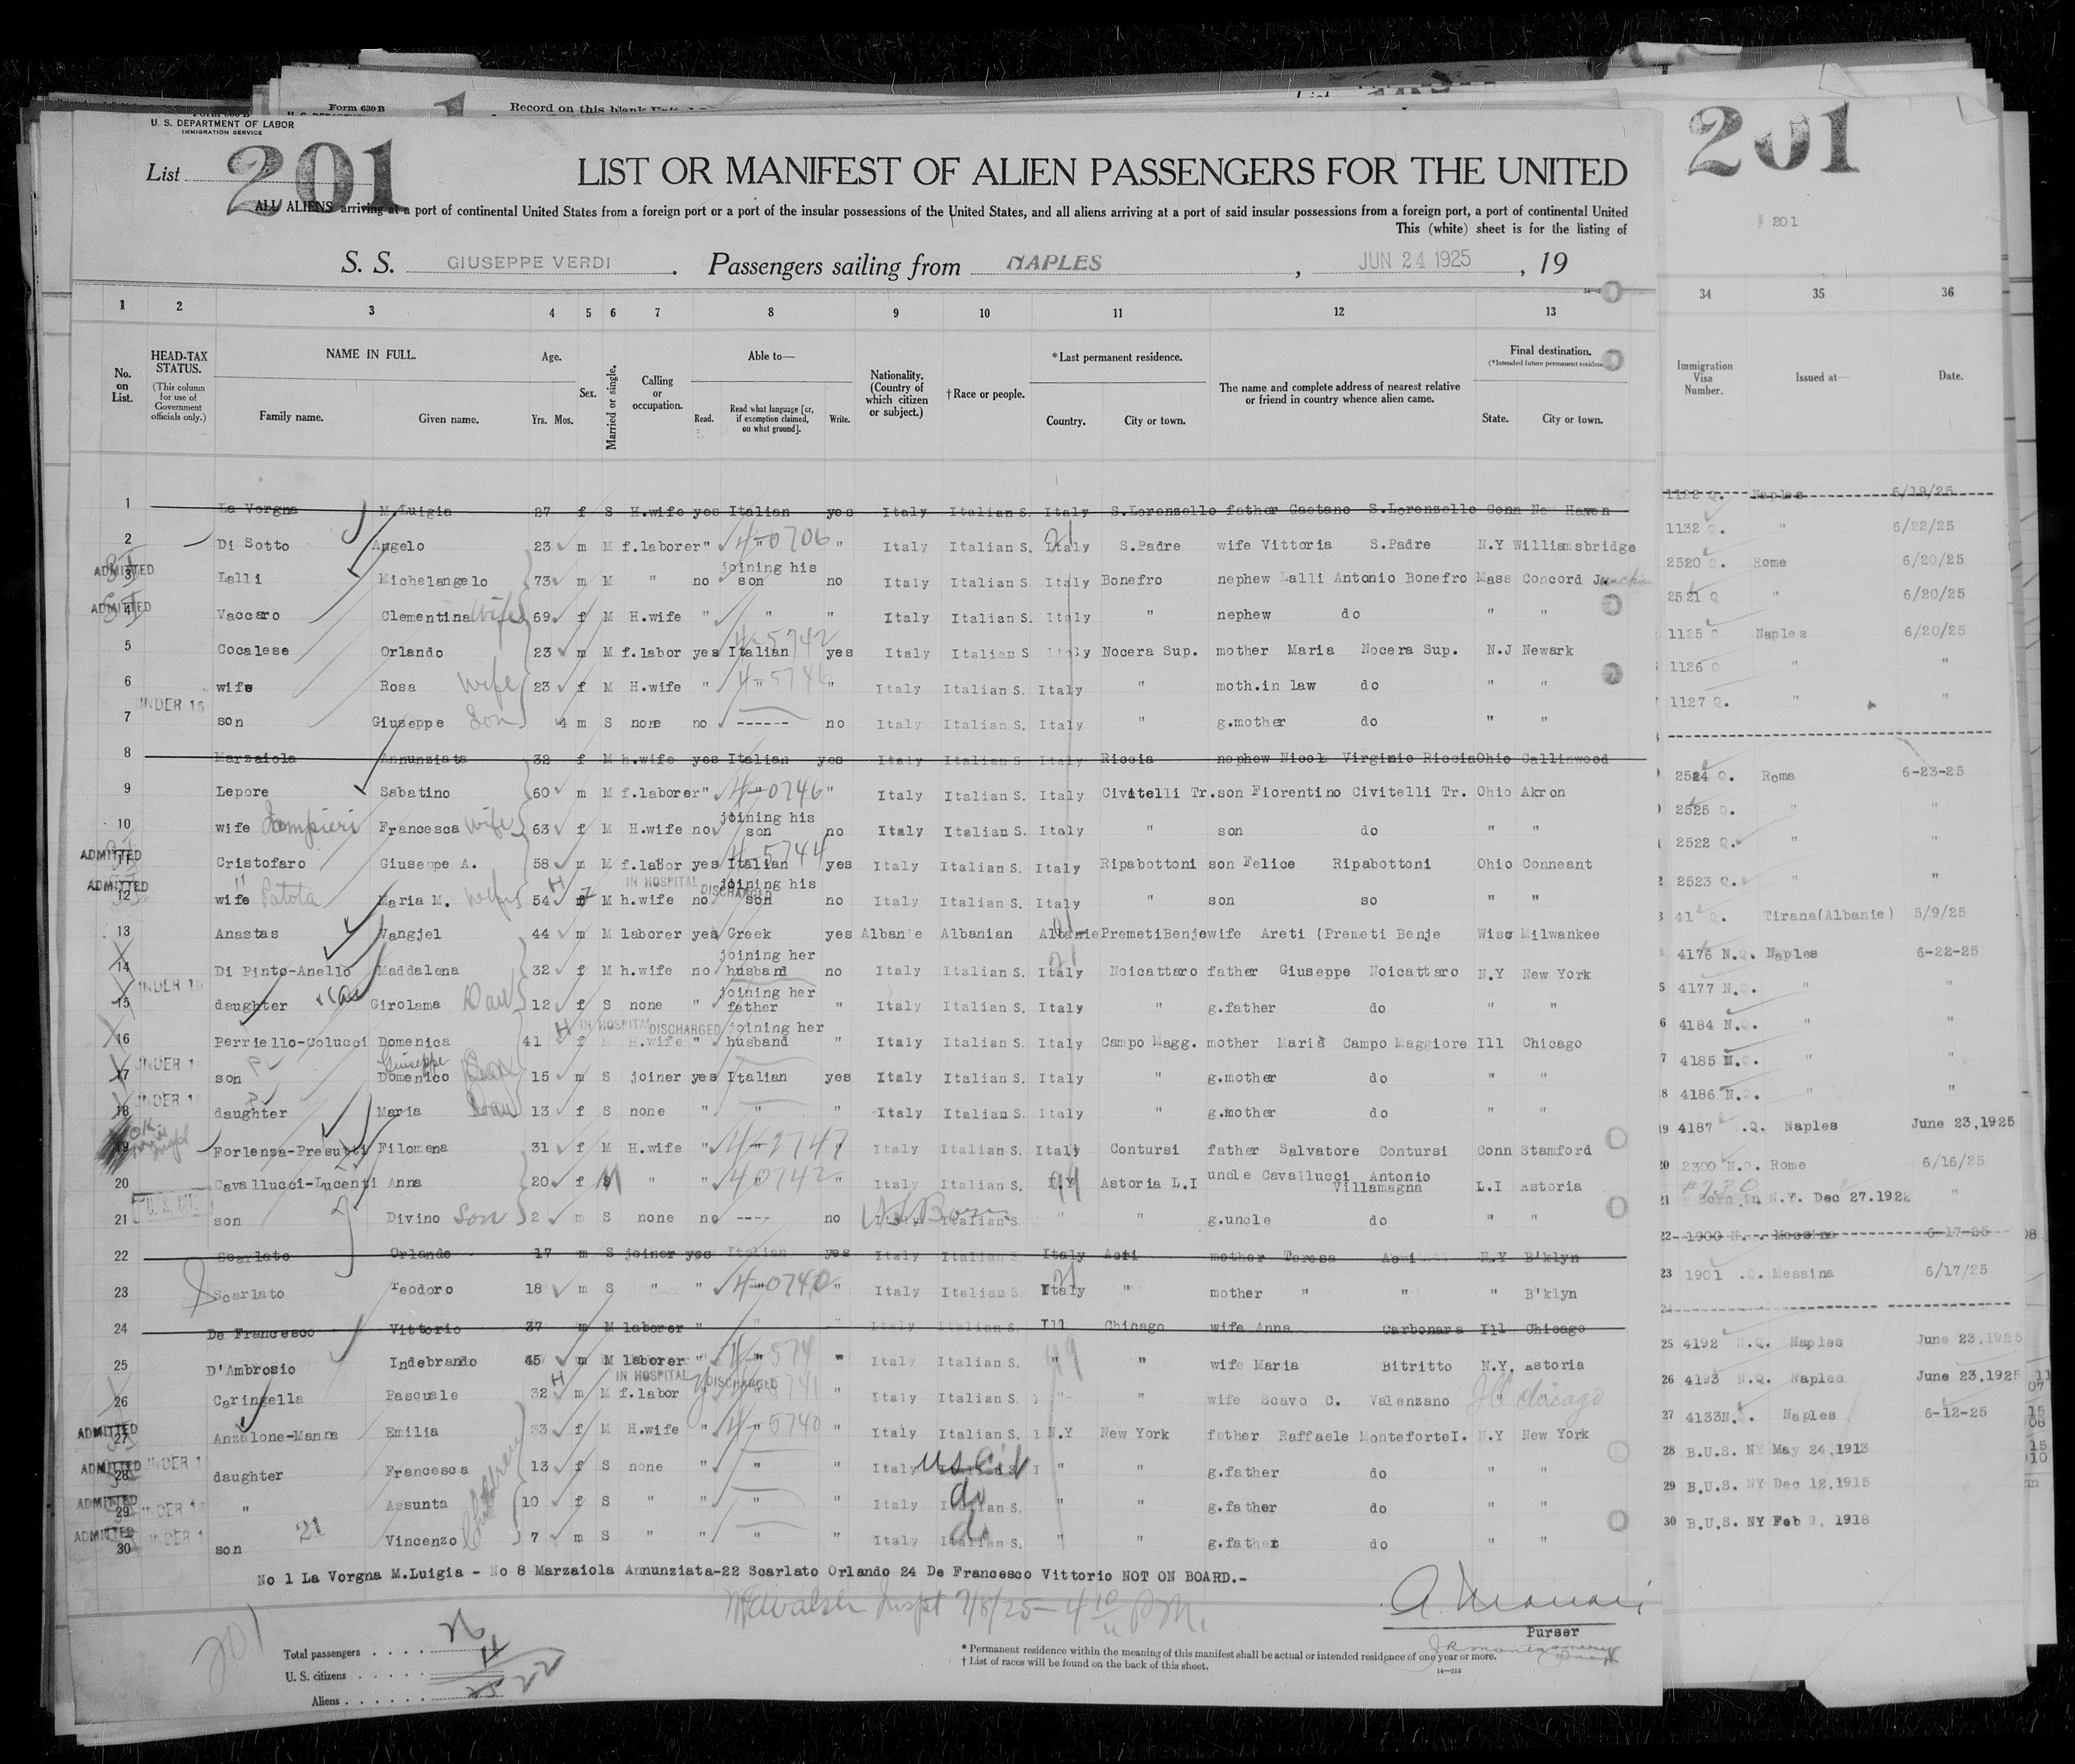 Form 630 B
Record on this blank
U. S. DEPARTMENT OF LABOR
IMMIGRATION SERVICE
List 201
201
# 201
LIST OR MANIFEST OF ALIEN PASSENGERS FOR THE UNITED
ALL ALIENS arriving at a port of continental United States from a foreign port or a port of the insular possessions of the United States, and all aliens arriving at a port of said insular possessions from a foreign port, a port of continental United
This (white) sheet is for the listing of
S. S. GIUSEPPE VERDI . Passengers sailing from NAPLES , JUN 24 1925 , 19
1 2 3 4 5 6 7 8 9 10 11 12 13 34 35 36
No. on List. HEAD-TAX STATUS. (This column for use of Government officials only.) NAME IN FULL. Family name. Given name. Age. Yrs. Mos. Sex. Married or single. Calling or occupation. Able to— Read. Read what language [or, if exemption claimed, on what ground]. Write. Nationality. (Country of which citizen or subject.) †Race or people. *Last permanent residence. Country. City or town. The name and complete address of nearest relative or friend in country whence alien came. Final destination. (*Intended future permanent residence) State. City or town. Immigration Visa Number. Issued at— Date.
1 La Vorgna M.Luigia 27 f S H.wife yes Italian yes Italy Italian S. Italy S.Lorenzello father Gaetano S.Lorenzello Conn New Haven 1122 Q. Naples 6/19/25
2 Di Sotto Angelo 23 m M f.laborer " 4-0706 " Italy Italian S. Italy S.Padre wife Vittoria S.Padre N.Y Williamsbridge 1132 Q. " 6/22/25
ADMITTED 3 Lalli Michelangelo 73 m M " no joining his son no Italy Italian S. Italy Bonefro nephew Lalli Antonio Bonefro Mass Concord Junction 2520 Q. Rome 6/20/25
ADMITTED 4 Vaccaro Clementina Wife 69 f M H.wife " " " Italy Italian S. Italy " nephew do " " 2521 Q " 6/20/25
5 Cocalese Orlando 23 m M f.labor yes Italian 4-5742 yes Italy Italian S Italy Nocera Sup. mother Maria Nocera Sup. N.J Newark 1125 Q Naples 6/20/25
6 wife Rosa Wife 23 f M H.wife " 4-5746 " Italy Italian S. Italy " moth.in law do " " 1126 Q " "
UNDER 16 7 son Giuseppe Son 4 m S none no ------ no Italy Italian S. Italy " g.mother do " " 1127 Q. " "
8 Marzaiola Annunziata 32 f M h.wife yes Italian yes Italy Italian S Italy Riccia nephew Nicola Virginio Riccia Ohio Collinwood
9 Lepore Sabatino 60 m M f.laborer " 4-0746 " Italy Italian S. Italy Civitelli Tr. son Fiorentino Civitelli Tr. Ohio Akron 2524 Q. Roma 6-23-25
10 wife Francesca Wife 63 f M H.wife no joining his son no Italy Italian S. Italy " son do " " 2525 Q. " "
ADMITTED 11 Cristofaro Giuseppe A. 58 m M f.labor yes Italian 4-5744 yes Italy Italian S. Italy Ripabottoni son Felice Ripabottoni Ohio Conneant 2522 Q. " "
ADMITTED 12 wife Patota Maria M. Wife 54 H f M h.wife IN HOSPITAL DISCHARGED no joining his son no Italy Italian S. Italy " son so " " 2523 Q. " "
13 Anastas Vangjel 44 m M laborer yes Greek yes Albanie Albanian Albanie Premeti Benje wife Areti (Premeti Benje Wisc Milwankee 41 Q. Tirana(Albanie) 5/9/25
14 Di Pinto-Anello Maddalena 32 f M h.wife no joining her husband no Italy Italian S. Italy Noicattaro father Giuseppe Noicattaro N.Y New York 4176 N.Q. Naples 6-22-25
UNDER 16 15 daughter Girolama Dau 12 f S none " joining her father " Italy Italian S. Italy " g.father do " " 4177 N.Q. " "
16 Perriello-Colucci Domenica 41 H f M H.wife IN HOSPITAL DISCHARGED " joining her husband " Italy Italian S. Italy Campo Magg. mother Maria Campo Maggiore Ill Chicago 4184 N.Q. " "
UNDER 16 17 son Giuseppe Domenico Son 15 m S joiner yes Italian yes Italy Italian S. Italy " g.mother do " " 4185 N.Q. " "
UNDER 16 18 daughter Maria Dau 13 f S none " " " Italy Italian S. Italy " g.mother do " " 4186 N.Q. " "
OK 19 Forlenza-Presutti Filomena 31 f M H.wife " 4-2747 " Italy Italian S. Italy Contursi father Salvatore Contursi Conn Stamford 4187 N.Q. Naples June 23,1925
20 Cavallucci-Lucenti Anna 20 f M " " 40742 " Italy Italian S. N.Y Astoria L.I uncle Cavallucci Antonio Villamagna L.I Astoria 2300 N.Q. Rome 6/16/25
U.S. CIT. 21 son Divino Son 2 m S none no ---- no Italy US Born Italian S " " g.uncle do " " Born in N.Y. Dec 27.1922 "
22 Scarlato Orlando 17 m S joiner yes Italian yes Italy Italian Italy Acri mother Teresa Acri N.Y B'klyn 1900 N.Q. Messina 6-17-25
23 Scarlato Teodoro 18 m S " " 4-0740 " Italy Italian S Italy " mother " " " B'klyn 1901 N.Q. Messina 6/17/25
24 De Francesco Vittorio 37 m M laborer " " " Italy Italian S. Ill Chicago wife Anna Carbonara Ill Chicago
25 D'Ambrosio Indebrando 45 m M laborer " " " Italy Italian S. " " wife Maria Bitritto N.Y. Astoria 4192 N.Q. Naples June 23,1925
26 Caringella Pasquale 32 H m M f.labor IN HOSPITAL DISCHARGED " " Italy Italian S. " " wife Scavo C. Valenzano Chicago 4193 N.Q. Naples June 23,1925
ADMITTED 27 Anzalone-Manna Emilia 33 f M H.wife " 4-5740 " Italy Italian S. N.Y New York father Raffaele Monteforte I. N.Y New York 4133 N.Q. Naples 6-12-25
ADMITTED UNDER 16 28 daughter Francesca 13 f S none " " " Italy US Cit Italian S. " " g.father do " " B.U.S. NY May 24,1913
ADMITTED UNDER 16 29 " Assunta Children 10 f S " " " " Italy do Italian S. " " g.father do " " B.U.S. NY Dec 12,1915
ADMITTED UNDER 16 30 son 21 Vincenzo 7 m S " " " " Italy do Italian S. " " g.father do " " B.U.S. NY Feb 9, 1918
No 1 La Vorgna M.Luigia - No 8 Marzaiola Annunziata-22 Scarlato Orlando 24 De Francesco Vittorio NOT ON BOARD.-
Inspt 7/8/25 - 4 10 P.M.
201
Purser
Total passengers . . . . 26
U. S. citizens . . . . . 4
Aliens . . . . . . 22
* Permanent residence within the meaning of this manifest shall be actual or intended residence of one year or more.
† List of races will be found on the back of this sheet.
14—213